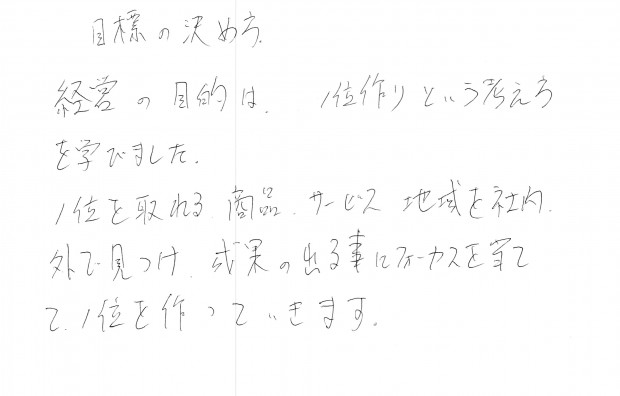 目標の決め方、
経営の目的は、 1位作りという考え方
を学びました。
1位を取れる、商品、サービス 地域を社内、
外で見つけ、成果の出る事にフォーカスを当て
て、1位を作っていきます。